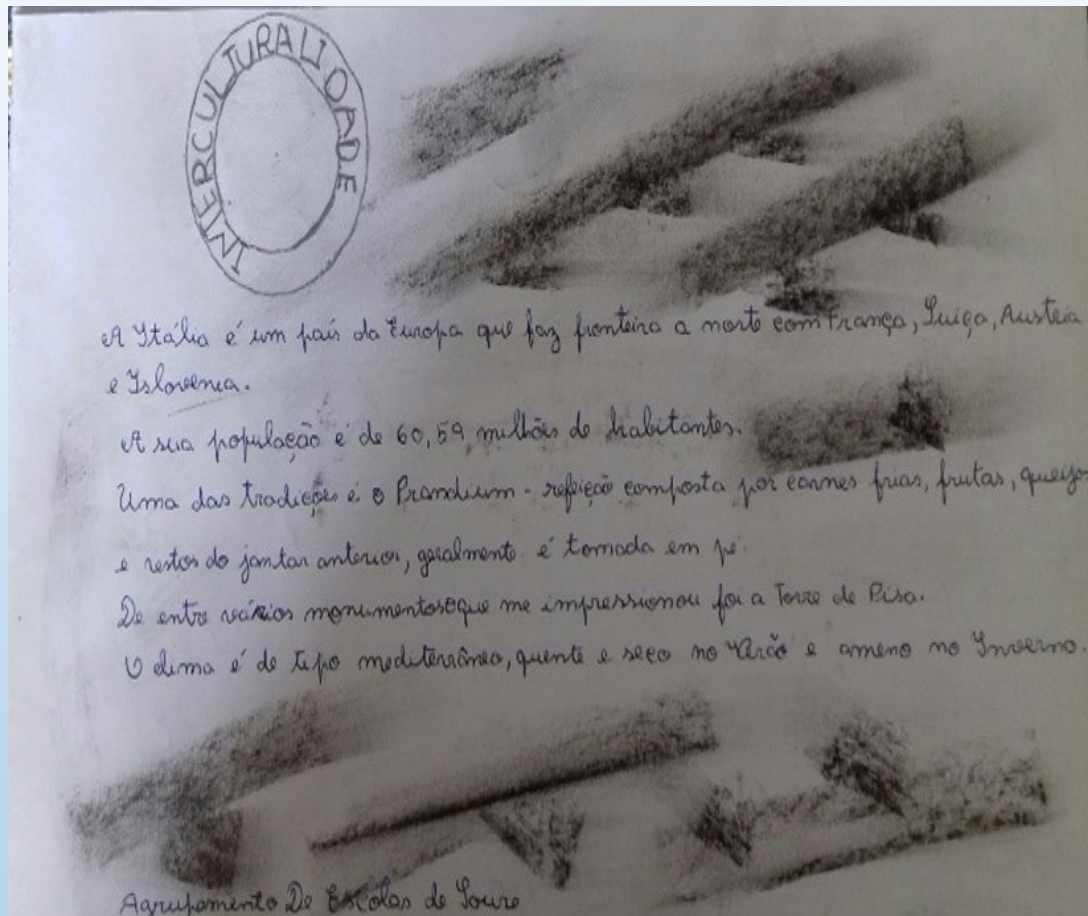 INTERCULTURALIDADE
A Itália é um país da Europa que faz fronteira a norte com França, Suiça, Austria
e Islovénia.
A sua população é de 60,59 milhões de habitantes.
Uma das tradições é o Prandium - refeição composta por carnes frias, frutas, queijos
e restos do jantar anterior, geralmente é tomada em pé.
De entre vários monumentos o que me impressionou foi a Torre de Pisa.
O clima é de tipo mediterrâneo, quente e seco no Verão e ameno no Inverno.
Agrupamento De Escolas de Soure